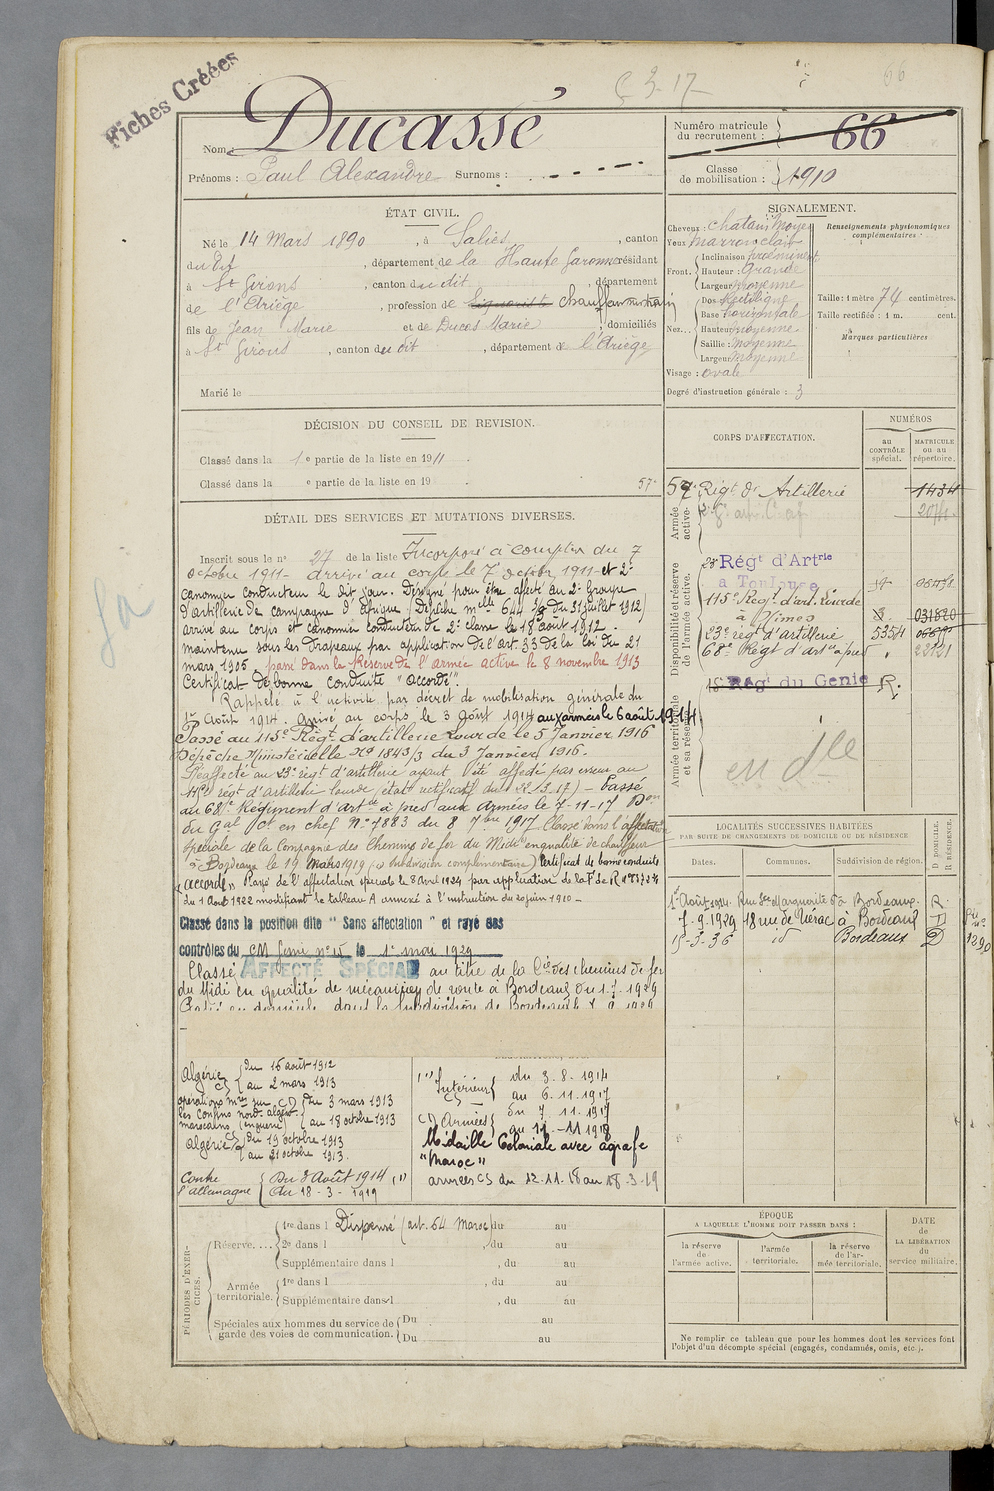 Fiches Créées
66
Nom : Ducasse
Numéro matricule du recrutement : 66
Prénoms : Paul Alexandre Surnoms :
Classe de mobilisation : 1910
ÉTAT CIVIL.
Né le 14 Mars 1890, à Salies, canton
du dit, département de la Haute Garonne résidant
à St Girons, canton du dit, département
de l'Ariège, profession de chauffeur
fils de Jean Marie et de Duces Marie, domiciliés
à St Girons, canton du dit, département de l'Ariège
Marié le
SIGNALEMENT.
Cheveux : chatain Moyen
Yeux marron clair
Front. Inclinaison proéminent
Hauteur : Grande
Largeur moyenne
Nez... Dos Rectiligne
Base horizontale
Hauteur moyenne
Saillie : moyenne
Largeur moyenne
Visage : ovale
Degré d'instruction générale : 3
Renseignements physionomiques complémentaires :
Taille : 1 mètre 74 centimètres.
Taille rectifiée : 1 m. cent.
Marques particulières
DÉCISION DU CONSEIL DE REVISION.
Classé dans la 1e partie de la liste en 1911
Classé dans la e partie de la liste en 19
57e
DÉTAIL DES SERVICES ET MUTATIONS DIVERSES.
Inscrit sous le n° 27 de la liste Incorporé à compter du 7
octobre 1911 - arrivé au corps le 7 octobre 1911 - et 2e
canonnier conducteur le dit jour. Désigné pour être affecté au 2e Groupe
d'artillerie de campagne d'Afrique (Dépêche mlle 644 3/3 du 31 juillet 1912)
arrivé au corps et canonnier conducteur de 2e classe le 18 août 1912.
maintenu sous les drapeaux par application de l'art. 33 de la loi du 21
mars 1905. passé dans la Réserve de l'armée active le 8 novembre 1913
Certificat de bonne conduite "accordé".
Rappelé à l'activité par décret de mobilisation générale du
1er août 1914. Arrivé au corps le 3 août 1914 aux armées le 6 août 1914
Passé au 115e Régt d'artillerie Lourde le 5 Janvier 1916
Dépêche Ministérielle N° 1843/3 du 3 Janvier 1916.
Réaffecté au 23e régt d'artillerie ayant été affecté par erreur au
115e régt d'artillerie lourde (état rectificatif du 22/3/17) - Passé
au 68e Régiment d'Artie à pied aux Armées le 7-11-17 Don
du Gal Ct en chef N° 7883 du 8 7bre 1917 Classé dans l'affectation
spéciale de la Compagnie des Chemins de fer du Midi en qualité de chauffeur
à Bordeaux le 19 Mars 1919 (subdivision complémentaire) Certificat de bonne conduite
"accordé" Rayé de l'affectation spéciale le 8 Avril 1924 par application de la
du 1 Août 1922 modifiant le tableau A annexé à l'instruction du 20 juin 1910 -
Classé dans la position dite "Sans affectation" et rayé des
contrôles du CM Génie n° 15 le 1er mai 1929
Classé AFFECTÉ SPÉCIAL au titre de la Cie des chemins de fer
du Midi en qualité de mécanicien de route à Bordeaux du 1.7.1929
CORPS D'AFFECTATION.
NUMÉROS
AU CONTRÔLE spécial.
MATRICULE OU AU répertoire.
Armée active.
57e Régt d'Artillerie 1434
Disponibilité et réserve de l'armée active.
23e Régt d'Artrie
à Toulouse
115e Régt d'art. Lourde
à Nîmes 031820
23e régt d'artillerie 5354
68e Régt d'artie à pied 22121
Armée territoriale et sa réserve.
18e Régt du Génie R.
LOCALITÉS SUCCESSIVES HABITÉES
PAR SUITE DE CHANGEMENTS DE DOMICILE OU DE RÉSIDENCE
Dates. Communes. Subdivision de région. D DOMICILE. R RÉSIDENCE.
1er Août 1924 Rue Ste Marguerite 6 à Bordeaux R.
7-9-1929 18 rue de Nérac à Bordeaux
15-3-36 id Bordeaux D
1290
Algérie CS du 16 août 1912
au 2 mars 1913
opérations mres sur
les confins nord. algéro.
marocains (en guerre) du 3 mars 1913
au 18 octobre 1913
Algérie CS du 19 octobre 1913
au 21 octobre 1913.
Contre l'allemagne du 3 Août 1914
Au 18-3-1919
(1) Intérieur CS du 3.8.1914
au 6.11.1917
CD Armées du 7.11.1917
au 11-11-1918
Médaille Coloniale avec agrafe
"Maroc"
armées CS du 12.11.18 au 18-3-19
PÉRIODES D'EXERCICES.
Réserve.... 1re dans l Dispensé (art. 64 Maroc) du au
2e dans l , du au
Supplémentaire dans l , du au
Armée territoriale. 1re dans l , du au
Supplémentaire dans l , du au
Spéciales aux hommes du service de garde des voies de communication. Du au
Du au
ÉPOQUE
A LAQUELLE L'HOMME DOIT PASSER DANS :
la réserve de l'armée active.
l'armée territoriale.
la réserve de l'armée territoriale.
DATE de LA LIBÉRATION du service militaire.
Ne remplir ce tableau que pour les hommes dont les services font
l'objet d'un décompte spécial (engagés, condamnés, omis, etc.).